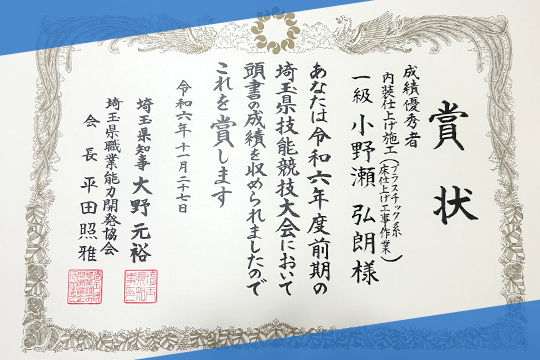 賞状
成績優秀者
内装仕上げ施工(プラスチック系床仕上げ工事作業)
一級 小野瀬 弘朗 様
あなたは令和六年度前期の
埼玉県技能競技大会において
頭書の成績を収められましたので
これを賞します
令和六年十一月二十七日
埼玉県知事 大野元裕
埼玉県職業能力開発協会
会長 平田照雅